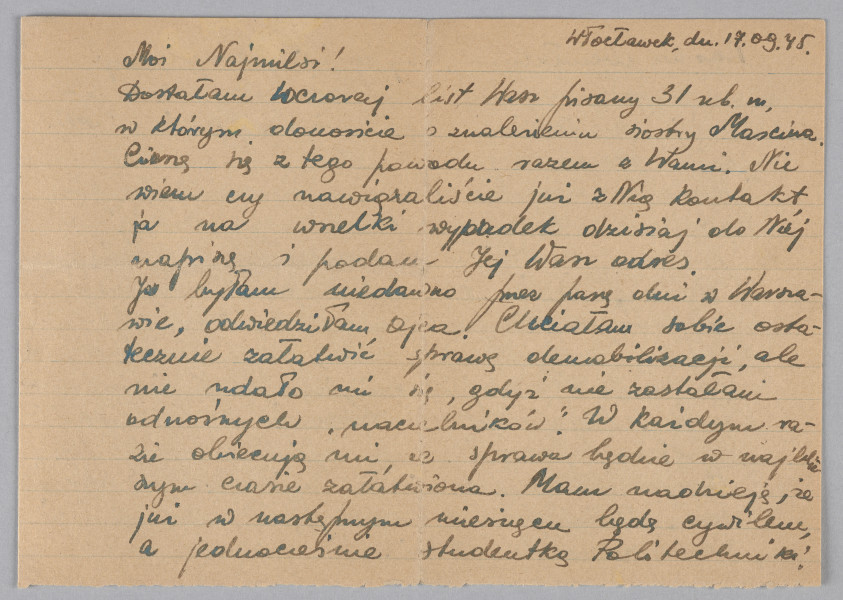 Włocławek, dn. 17.09.45.
Moi Najmilsi!
Dostałam wczoraj list Wasz pisany 31 ub. m,
w którym donosicie o znalezieniu siostry Marcina.
Cieszę się z tego powodu razem z Wami. Nie
wiem czy nawiązaliście już z Nią kontakt
ja na wszelki wypadek dzisiaj do Niej
napiszę i podam Jej Wasz adres.
Ja byłam niedawno przez parę dni w Warsza-
wie, odwiedziłam Ojca. Chciałam sobie osta-
tecznie załatwić sprawę demobilizacji, ale
nie udało mi się, gdyż nie zastałam
odnośnych „naczelników". W każdym ra-
zie obiecują mi, że sprawa będzie w najbliż
szym czasie załatwiona. Mam nadzieję, że
już w następnym miesiącu będę cywilem,
a jednocześnie studentką Politechniki!